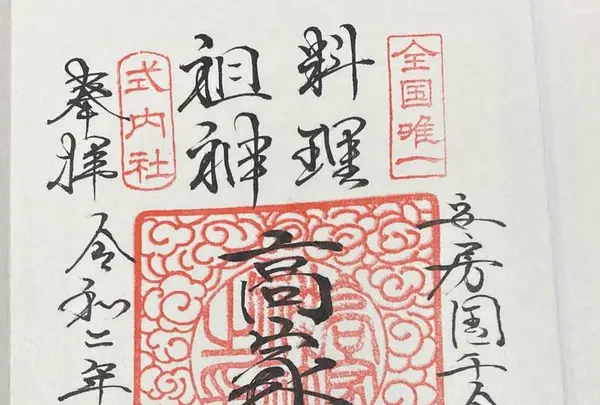 全国唯一
安房国千倉
料理
祖神
高家
式内社
奉拝
令和二年